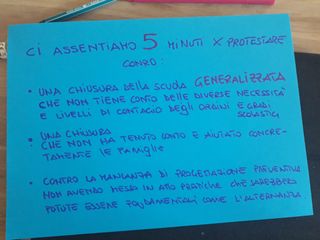 CI ASSENTIAMO 5 MINUTI X PROTESTARE
CONTRO:
• UNA CHIUSURA DELLA SCUOLA GENERALIZZATA
CHE NON TIENE CONTO DELLE DIVERSE NECESSITÀ
E LIVELLI DI CONTAGIO DEGLI ORDINI E GRADI
SCOLASTICI
• UNA CHIUSURA
CHE NON HA TENUTO CONTO E AIUTATO CONCRE-
TAMENTE LE FAMIGLIE
• CONTRO LA MANCANZA DI PROGETTAZIONE PREVENTIVA
NON AVENDO MESSO IN ATTO PRATICHE CHE SAREBBERO
POTUTE ESSERE FONDAMENTALI COME L'ALTERNANZA